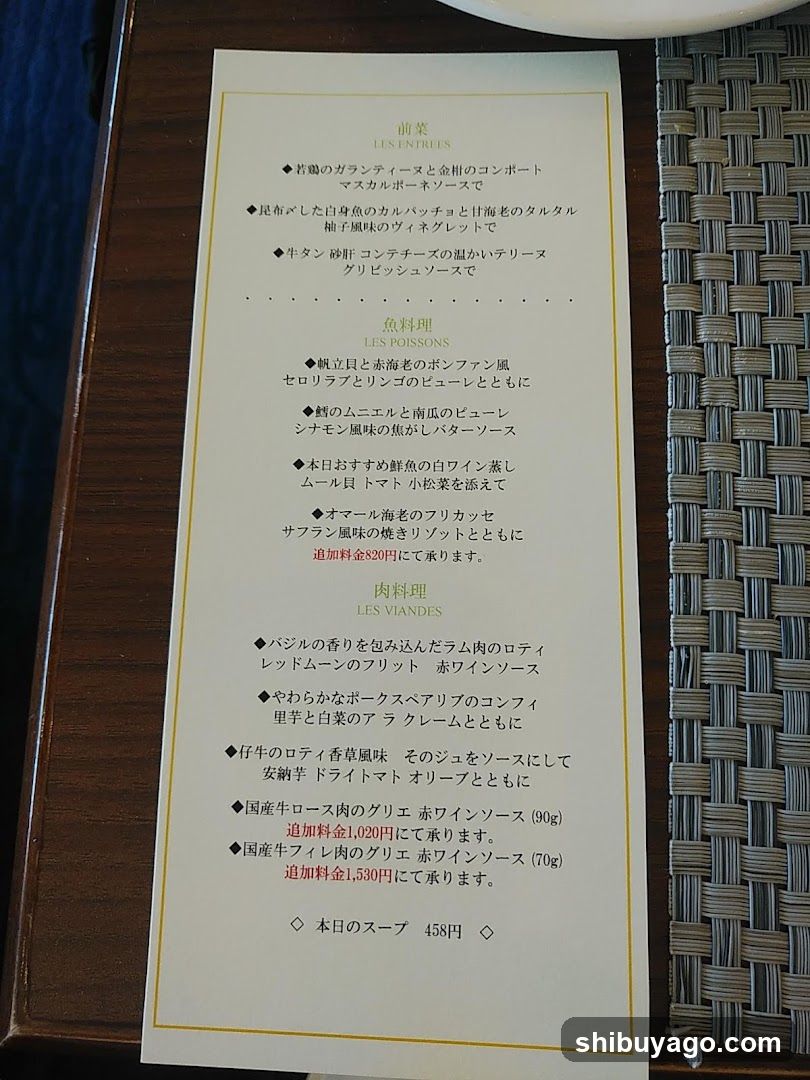 前菜
LES ENTREES
◆若鶏のガランティーヌと金柑のコンポート
マスカルポーネソースで
◆昆布〆した白身魚のカルパッチョと甘海老のタルタル
柚子風味のヴィネグレットで
◆牛タン 砂肝 コンテチーズの温かいテリーヌ
グリビッシュソースで
魚料理
LES POISSONS
◆帆立貝と赤海老のボンファン風
セロリラブとリンゴのピューレとともに
◆鱈のムニエルと南瓜のピューレ
シナモン風味の焦がしバターソース
◆本日おすすめ鮮魚の白ワイン蒸し
ムール貝 トマト 小松菜を添えて
◆オマール海老のフリカッセ
サフラン風味の焼きリゾットとともに
追加料金820円にて承ります。
肉料理
LES VIANDES
◆バジルの香りを包み込んだラム肉のロティ
レッドムーンのフリット 赤ワインソース
◆やわらかなポークスペアリブのコンフィ
里芋と白菜のア ラ クレームとともに
◆仔牛のロティ香草風味 そのジュをソースにして
安納芋 ドライトマト オリーブとともに
◆国産牛ロース肉のグリエ 赤ワインソース (90g)
追加料金1,020円にて承ります。
◆国産牛フィレ肉のグリエ 赤ワインソース (70g)
追加料金1,530円にて承ります。
◇ 本日のスープ 458円 ◇
shibuyago.com